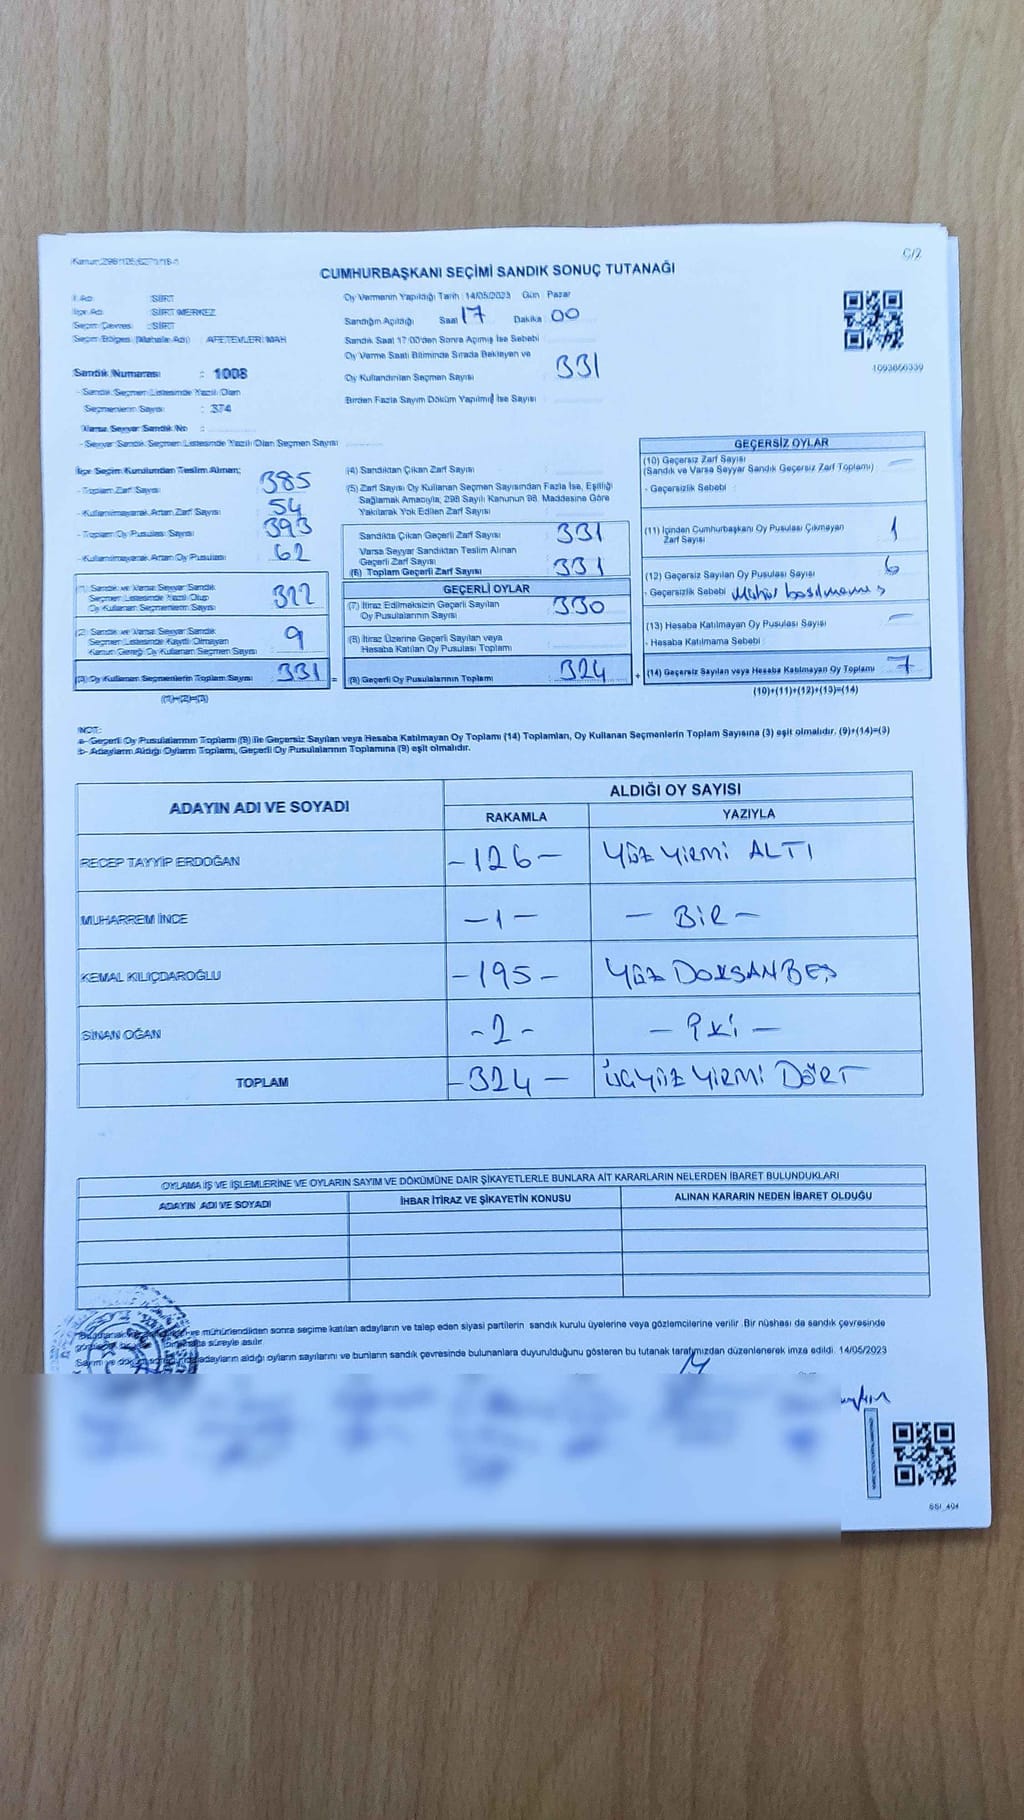 Kanun:298/105,6271/18-1
C/2
CUMHURBAŞKANI SEÇİMİ SANDIK SONUÇ TUTANAĞI
İl Adı : SİİRT
İlçe Adı : SİİRT MERKEZ
Seçim Çevresi : SİİRT
Seçim Bölgesi (Mahalle Adı) AFETEVLERİ MAH
Sandık Numarası : 1008
- Sandık Seçmen Listesinde Yazılı Olan
Seçmenlerin Sayısı : 374
Varsa Seyyar Sandık No :
- Seyyar Sandık Seçmen Listesinde Yazılı Olan Seçmen Sayısı
Oy Vermenin Yapıldığı Tarih :14/05/2023 Gün Pazar
Sandığın Açıldığı Saat 17 Dakika 00
Sandık Saat 17:00'den Sonra Açılmış İse Sebebi
Oy Verme Saati Bitiminde Sırada Bekleyen ve
Oy Kullandırılan Seçmen Sayısı 331
Birden Fazla Sayım Döküm Yapılmış İse Sayısı
1093666339
İlçe Seçim Kurulundan Teslim Alınan;
- Toplam Zarf Sayısı 385
- Kullanılmayarak Artan Zarf Sayısı 54
- Toplam Oy Pusulası Sayısı 393
- Kullanılmayarak Artan Oy Pusulası 62
(1) Sandık ve Varsa Seyyar Sandık
Seçmen Listesinde Yazılı Olup
Oy Kullanan Seçmenlerin Sayısı 322
(2) Sandık ve Varsa Seyyar Sandık
Seçmen Listesinde Kayıtlı Olmayan
Kanun Gereği Oy Kullanan Seçmen Sayısı 9
(3) Oy Kullanan Seçmenlerin Toplam Sayısı 331 =
(1)+(2)=(3)
(4) Sandıktan Çıkan Zarf Sayısı
(5) Zarf Sayısı Oy Kullanan Seçmen Sayısından Fazla İse, Eşitliği
Sağlamak Amacıyla, 298 Sayılı Kanunun 98. Maddesine Göre
Yakılarak Yok Edilen Zarf Sayısı
Sandıkta Çıkan Geçerli Zarf Sayısı 331
Varsa Seyyar Sandıktan Teslim Alınan
Geçerli Zarf Sayısı
(6) Toplam Geçerli Zarf Sayısı 331
GEÇERLİ OYLAR
(7) İtiraz Edilmeksizin Geçerli Sayılan
Oy Pusulalarının Sayısı 330
(8) İtiraz Üzerine Geçerli Sayılan veya
Hesaba Katılan Oy Pusulası Toplamı
(9) Geçerli Oy Pusulalarının Toplamı 324 +
GEÇERSİZ OYLAR
(10) Geçersiz Zarf Sayısı
(Sandık ve Varsa Seyyar Sandık Geçersiz Zarf Toplamı) —
- Geçersizlik Sebebi :
(11) İçinden Cumhurbaşkanı Oy Pusulası Çıkmayan
Zarf Sayısı 1
(12) Geçersiz Sayılan Oy Pusulası Sayısı 6
- Geçersizlik Sebebi Mühür basılmamış
(13) Hesaba Katılmayan Oy Pusulası Sayısı —
- Hesaba Katılmama Sebebi :
(14) Geçersiz Sayılan veya Hesaba Katılmayan Oy Toplamı 7
(10)+(11)+(12)+(13)=(14)
NOT:
a- Geçerli Oy Pusulalarının Toplamı (9) ile Geçersiz Sayılan veya Hesaba Katılmayan Oy Toplamı (14) Toplamları, Oy Kullanan Seçmenlerin Toplam Sayısına (3) eşit olmalıdır. (9)+(14)=(3)
b- Adayların Aldığı Oyların Toplamı, Geçerli Oy Pusulalarının Toplamına (9) eşit olmalıdır.
ADAYIN ADI VE SOYADI
ALDIĞI OY SAYISI
RAKAMLA YAZIYLA
RECEP TAYYİP ERDOĞAN -126- YÜZ YİRMİ ALTI
MUHARREM İNCE -1- - BİR -
KEMAL KILIÇDAROĞLU -195- YÜZ DOKSANBEŞ
SİNAN OĞAN -2- - İKİ -
TOPLAM -324- ÜÇYÜZ YİRMİ DÖRT
OYLAMA İŞ VE İŞLEMLERİNE VE OYLARIN SAYIM VE DÖKÜMÜNE DAİR ŞİKAYETLERLE BUNLARA AİT KARARLARIN NELERDEN İBARET BULUNDUKLARI
ADAYIN ADI VE SOYADI İHBAR İTİRAZ VE ŞİKAYETİN KONUSU ALINAN KARARIN NEDEN İBARET OLDUĞU
ve mühürlendikten sonra seçime katılan adayların ve talep eden siyasi partilerin sandık kurulu üyelerine veya gözlemcilerine verilir .Bir nüshası da sandık çevresinde
süreyle asılır.
Sayım ve döküm adayların aldığı oyların sayılarını ve bunların sandık çevresinde bulunanlara duyurulduğunu gösteren bu tutanak tarafımızdan düzenlenerek imza edildi. 14/05/2023